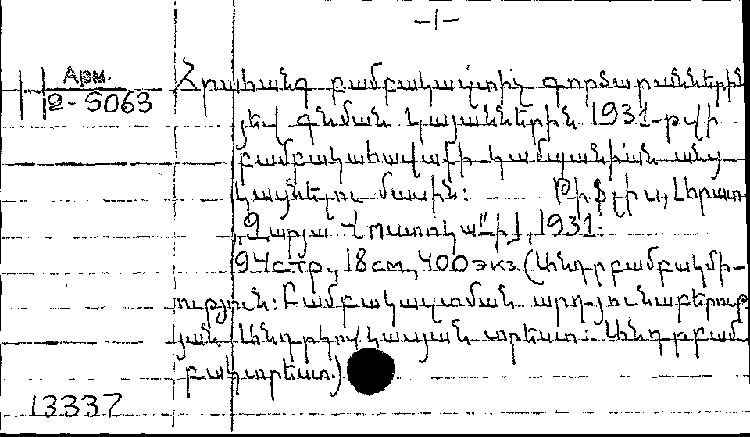 -1-
Арм.
2-5063
Հրահանգ բամբակազտիչ գործարաններին
յեվ գնման կայաններին 1931-թվի
բամբակահավաքի կամպանիան անց
կացնելու մասին: Թիֆլիս,
"Զարյա Վոստոկա"-ի, 1931:
94 стр., 18 см., 400 экз. (Անդրբամբակմի-
ություն: Բամբակազտման արդյունաբերութ
յան Անդրկովկասյան տրեստ: Անդրբամ
բակտրեստ.)
13337